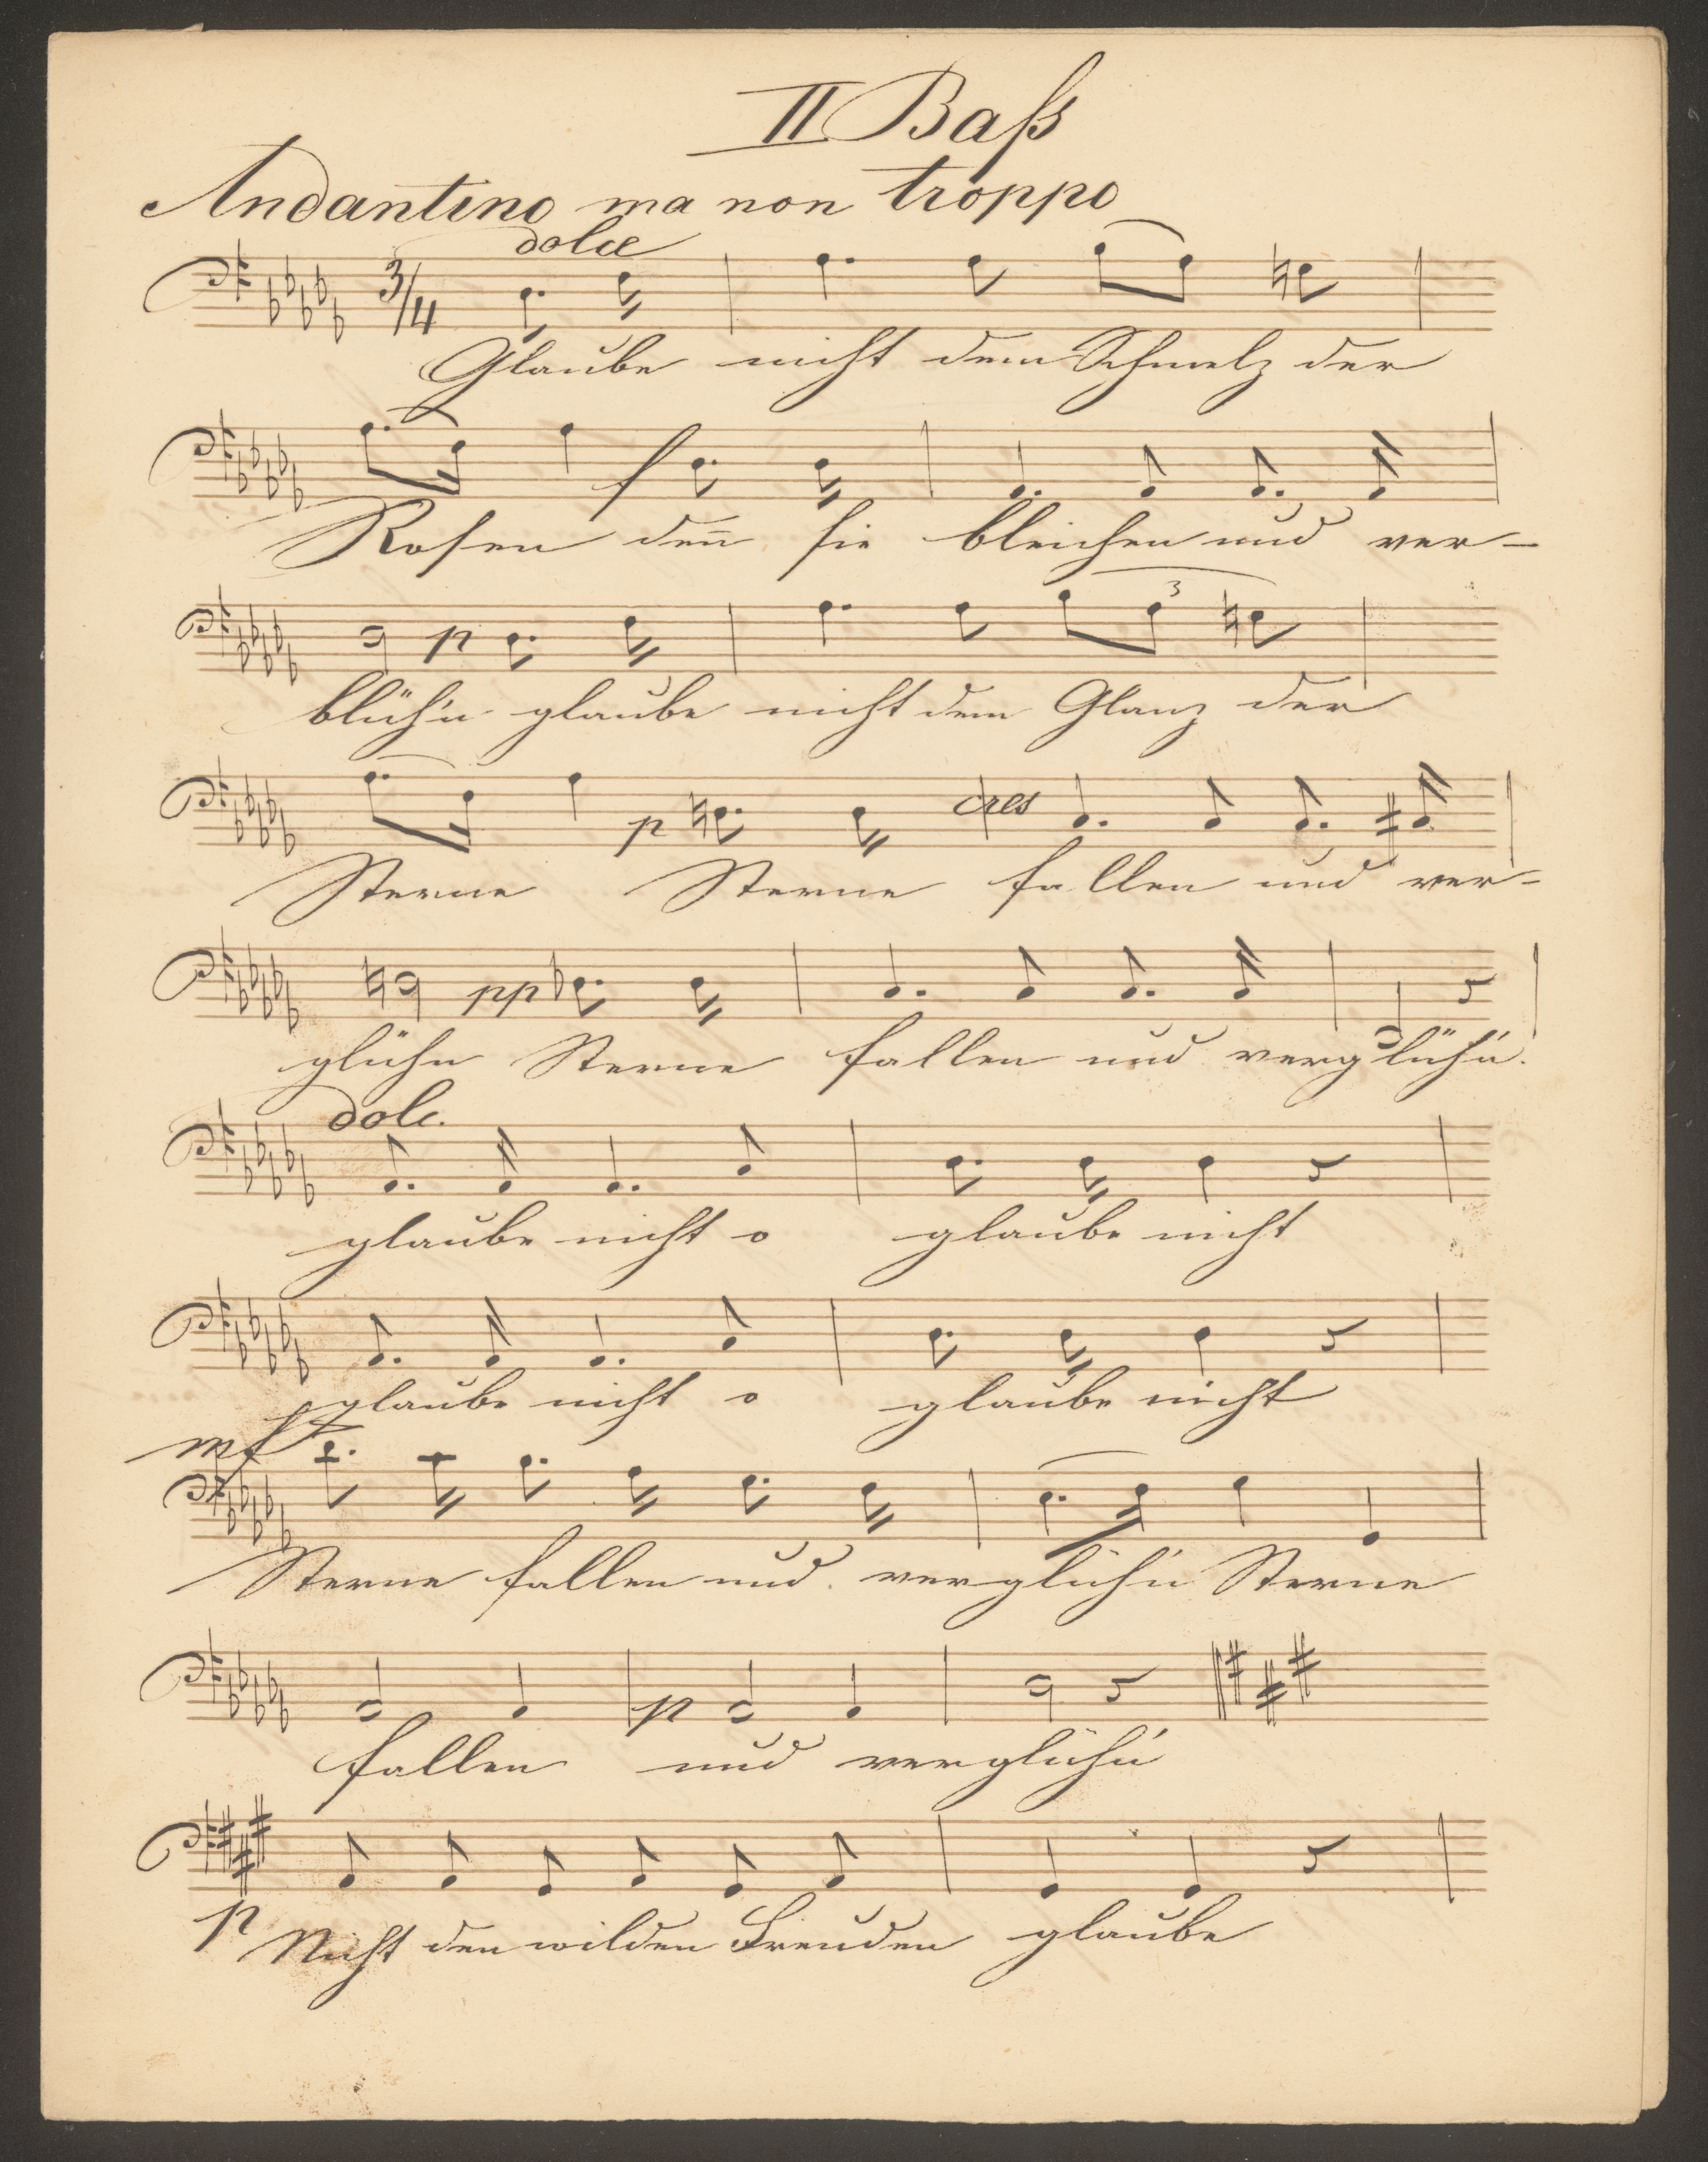 II Baß
Andantino ma non troppo
dolce
3/4
Glaube nicht dem Schmelz der
f
Rosen den̄ sie bleichen und ver-
p 3
blüh'n glaube nicht dem Glanz der
p cres
Sterne Sterne fallen und ver-
pp
glühn Sterne fallen und verglüh'n.
dolc.
glaube nicht o glaube nicht
glaube nicht o glaube nicht
mf
Sterne fallen und verglüh'n Sterne
p
fallen und verglüh'n
p
Nicht den wilden Freuden glaube